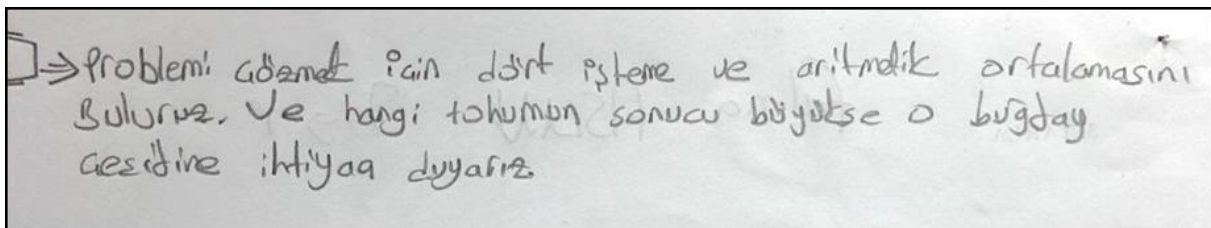 ⇒ Problemi çözmek için dört işleme ve aritmetik ortalamasını
Buluruz. Ve hangi tohumun sonucu büyükse o buğday
çesidine ihtiyaç duyarız.